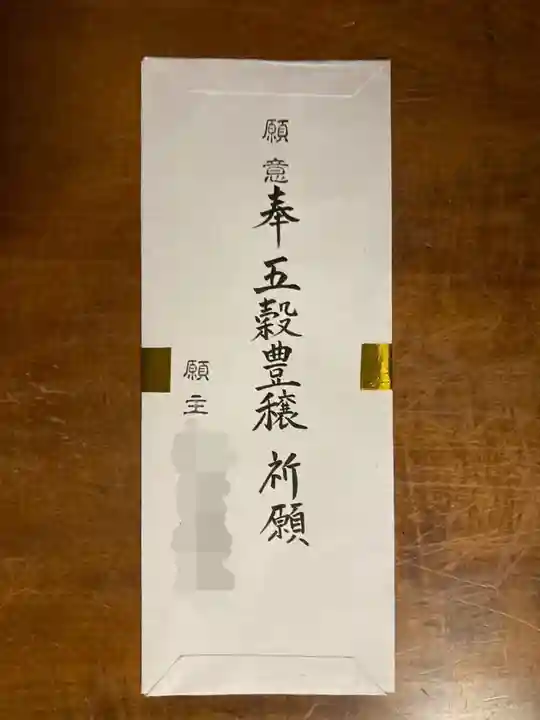 願意 奉 五穀豊穣 祈願
願主